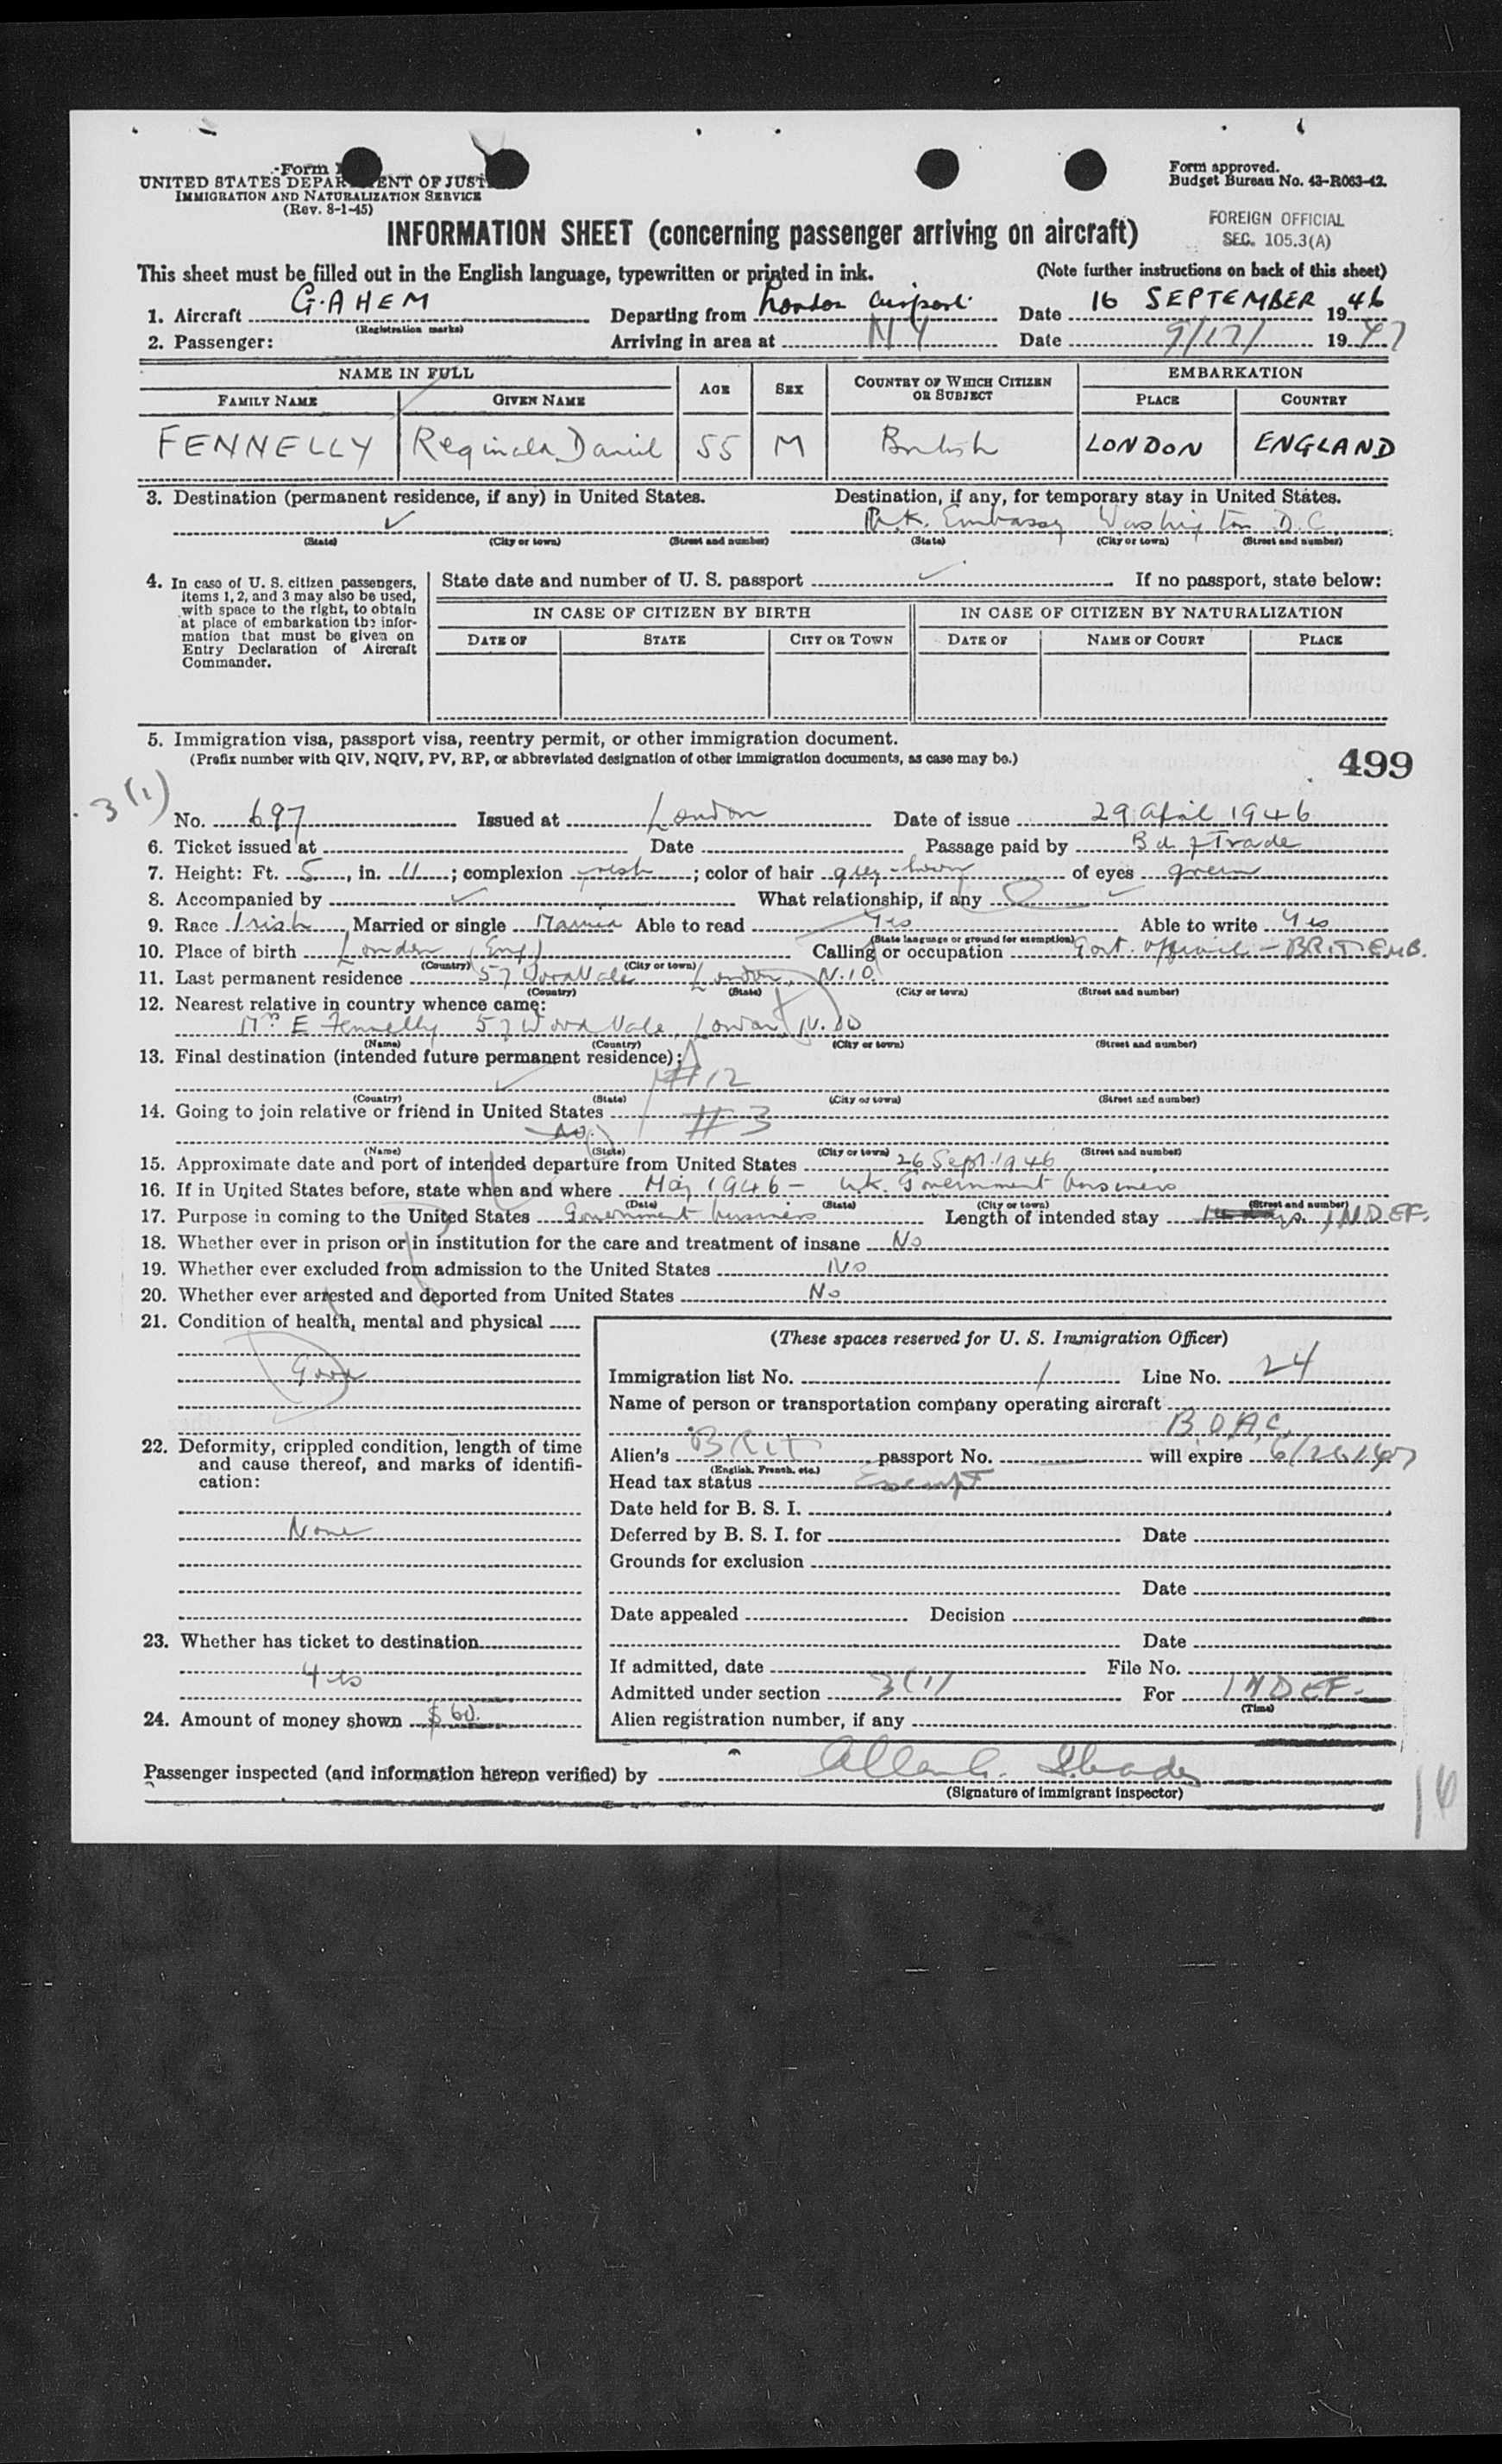 Form
UNITED STATES DEPARTMENT OF JUST
IMMIGRATION AND NATURALIZATION SERVICE
(Rev. 8-1-45)
Form approved.
Budget Bureau No. 43-R063-42.
FOREIGN OFFICIAL
SEC. 105.3(A)
INFORMATION SHEET (concerning passenger arriving on aircraft)
This sheet must be filled out in the English language, typewritten or printed in ink. (Note further instructions on back of this sheet)
1. Aircraft G.AHEM Departing from London Airport Date 16 SEPTEMBER 1946
(Registration marks)
2. Passenger: Arriving in area at NY Date 9/17/ 1947
NAME IN FULL AGE SEX COUNTRY OF WHICH CITIZEN OR SUBJECT EMBARKATION
FAMILY NAME GIVEN NAME PLACE COUNTRY
FENNELLY Reginald Daniel 55 M British LONDON ENGLAND
3. Destination (permanent residence, if any) in United States. Destination, if any, for temporary stay in United States.
✓ U.K. Embassy Washington D.C.
(State) (City or town) (Street and number) (State) (City or town) (Street and number)
4. In case of U. S. citizen passengers, items 1, 2, and 3 may also be used, with space to the right, to obtain at place of embarkation the information that must be given on Entry Declaration of Aircraft Commander.
State date and number of U. S. passport ✓ If no passport, state below:
IN CASE OF CITIZEN BY BIRTH IN CASE OF CITIZEN BY NATURALIZATION
DATE OF STATE CITY OR TOWN DATE OF NAME OF COURT PLACE
5. Immigration visa, passport visa, reentry permit, or other immigration document.
(Prefix number with QIV, NQIV, PV, RP, or abbreviated designation of other immigration documents, as case may be.)
499
3(1)
No. 697 Issued at London Date of issue 29 April 1946
6. Ticket issued at Date Passage paid by Bd of Trade
7. Height: Ft. 5, in. 11; complexion fresh; color of hair grey-brown of eyes green
8. Accompanied by ✓ What relationship, if any ✓
9. Race Irish Married or single Married Able to read Yes Able to write Yes
(State language or ground for exemption)
10. Place of birth London (Eng) Calling or occupation Govt. official - BRIT EMB.
(Country) (City or town)
11. Last permanent residence 57 Wood Vale London, N.10.
(Country) (State) (City or town) (Street and number)
12. Nearest relative in country whence came:
Mrs E Fennelly 57 Wood Vale, London, N.10
(Name) (Country) (City or town) (Street and number)
13. Final destination (intended future permanent residence):
✓ #12
(Country) (State) (City or town) (Street and number)
14. Going to join relative or friend in United States #3
No.
(Name) (State) (City or town) (Street and number)
15. Approximate date and port of intended departure from United States 26 Sept. 1946
16. If in United States before, state when and where May 1946 - U.K. Government business
(Date) (State) (City or town) (Street and number)
17. Purpose in coming to the United States Government business Length of intended stay INDEF.
18. Whether ever in prison or in institution for the care and treatment of insane No
19. Whether ever excluded from admission to the United States No
20. Whether ever arrested and deported from United States No
21. Condition of health, mental and physical
Good
22. Deformity, crippled condition, length of time and cause thereof, and marks of identification:
None
23. Whether has ticket to destination
Yes
24. Amount of money shown $60.
(These spaces reserved for U. S. Immigration Officer)
Immigration list No. 1 Line No. 24
Name of person or transportation company operating aircraft
B.O.A.C.
Alien's BRIT passport No. will expire 6/26/47
(English, French, etc.)
Head tax status Exempt
Date held for B. S. I.
Deferred by B. S. I. for Date
Grounds for exclusion
Date
Date appealed Decision
Date
If admitted, date File No.
Admitted under section 3(1) For INDEF.
(Time)
Alien registration number, if any
Passenger inspected (and information hereon verified) by
(Signature of immigrant inspector)
16